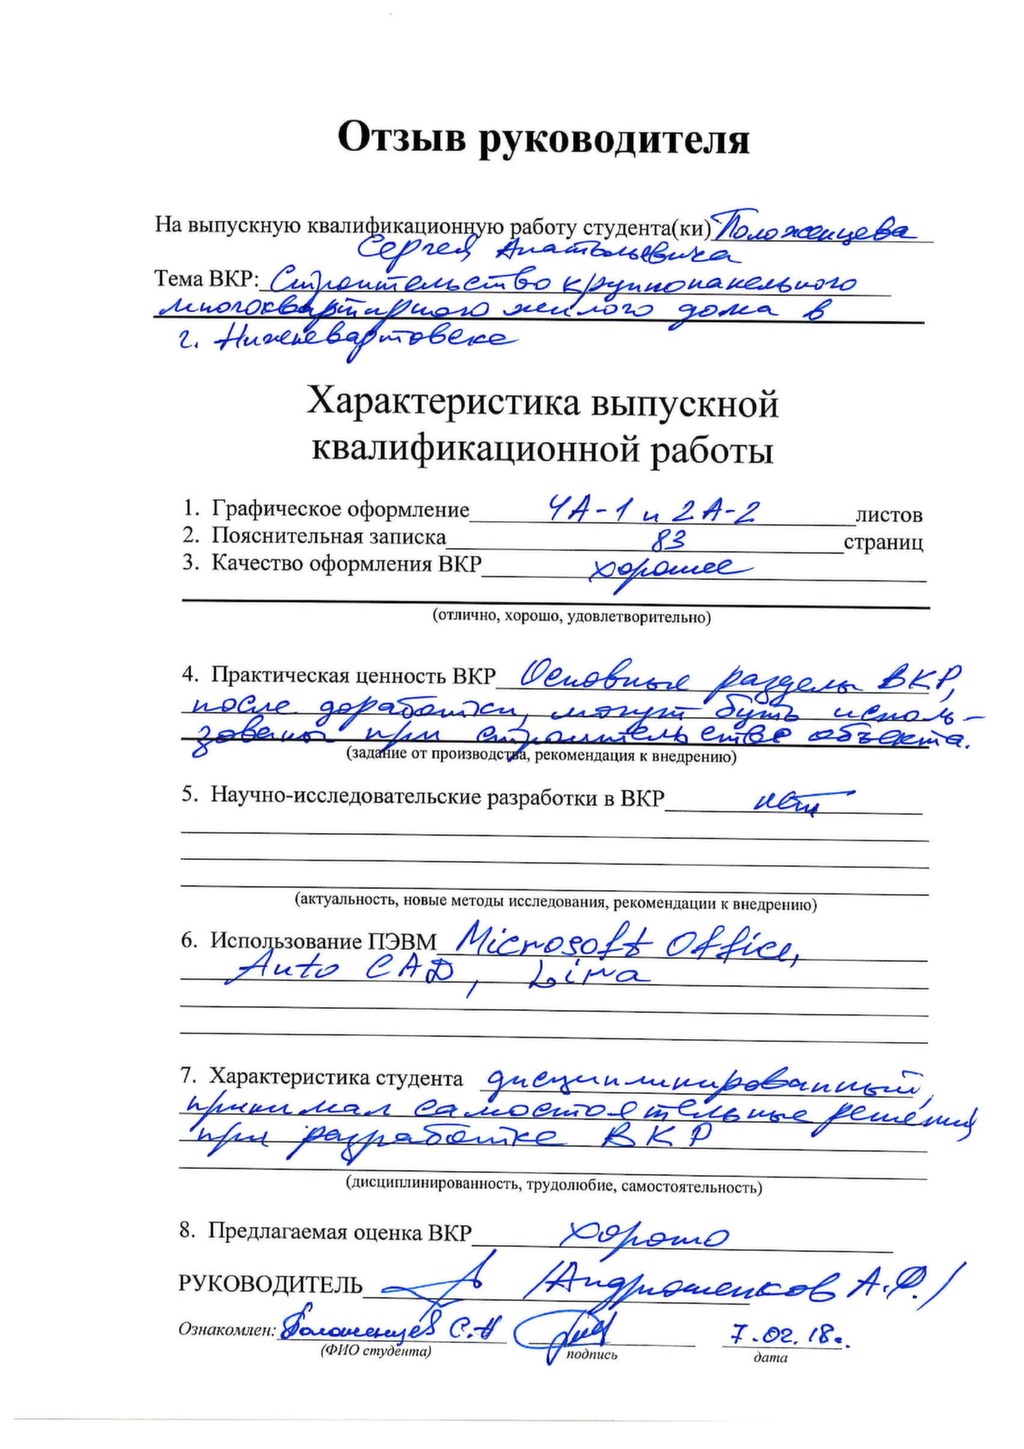 Отзыв руководителя
На выпускную квалификационную работу студента(ки) Положенцева
Сергея Анатольевича
Тема ВКР: Строительство крупнопанельного
многоквартирного жилого дома в
г. Нижневартовске
Характеристика выпускной
квалификационной работы
1. Графическое оформление 4А-1 и 2А-2 листов
2. Пояснительная записка 83 страниц
3. Качество оформления ВКР хорошее
(отлично, хорошо, удовлетворительно)
4. Практическая ценность ВКР Основные разделы ВКР,
после доработки, могут быть исполь-
зованы при строительстве объекта.
(задание от производства, рекомендация к внедрению)
5. Научно-исследовательские разработки в ВКР нет
(актуальность, новые методы исследования, рекомендации к внедрению)
6. Использование ПЭВМ Microsoft Office,
Auto CAD, Lira
7. Характеристика студента дисциплинированный,
принимал самостоятельные решения
при разработке ВКР
(дисциплинированность, трудолюбие, самостоятельность)
8. Предлагаемая оценка ВКР хорошо
РУКОВОДИТЕЛЬ /Андрюшенков А.Ф./
Ознакомлен: Положенцев С.А 7.02.18г.
(ФИО студента) подпись дата